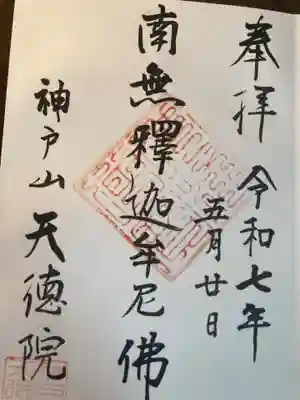 奉拝 令和七年
五月廿日
南無釋迦牟尼佛
神戸山 天徳院